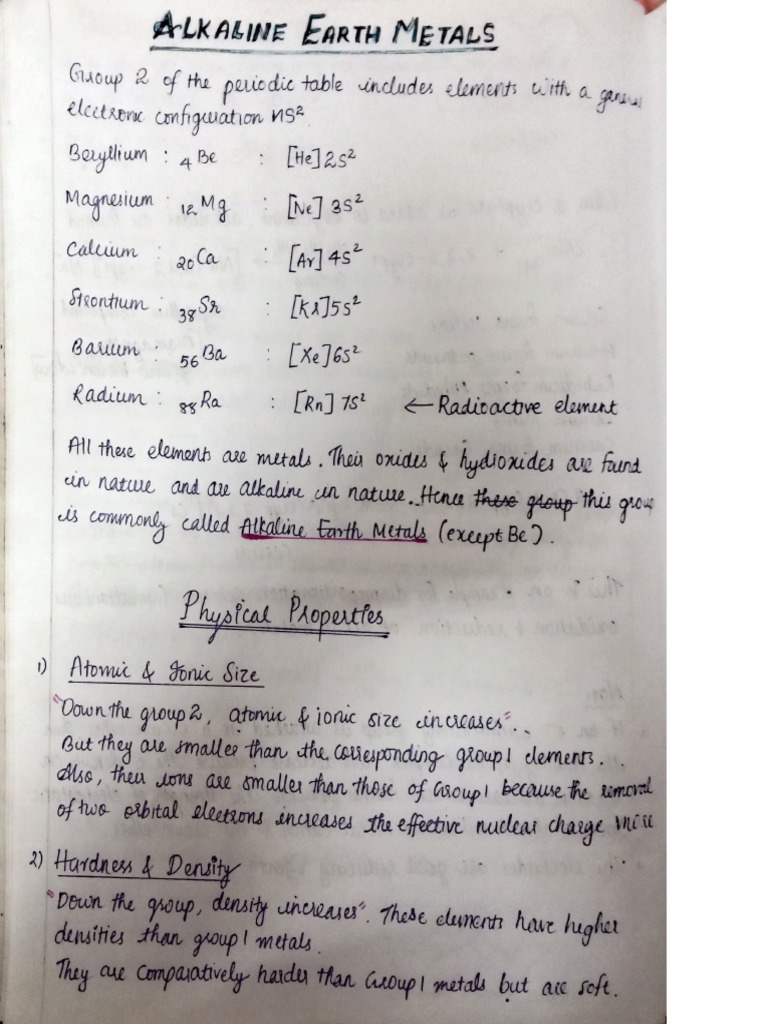 ALKALINE EARTH METALS
Group 2 of the periodic table includes elements with a general
electronic configuration ns²
Beryllium : ₄Be : [He]2s²
Magnesium : ₁₂Mg : [Ne] 3s²
Calcium : ₂₀Ca : [Ar] 4s²
Strontium : ₃₈Sr : [Kr]5s²
Barium : ₅₆Ba : [Xe]6s²
Radium : ₈₈Ra : [Rn] 7s² ← Radioactive element
All these elements are metals. Their oxides & hydroxides are found
in nature and are alkaline in nature. Hence these group this group
is commonly called Alkaline Earth Metals (except Be).
Physical Properties
1) Atomic & Ionic Size
"Down the group 2, atomic & ionic size increases".
But they are smaller than the corresponding group 1 elements.
Also, their ions are smaller than those of Group 1 because the removal
of two orbital electrons increases the effective nuclear charge more
2) Hardness & Density
"Down the group, density increases". These elements have higher
densities than group 1 metals.
They are comparatively harder than Group 1 metals but are soft.